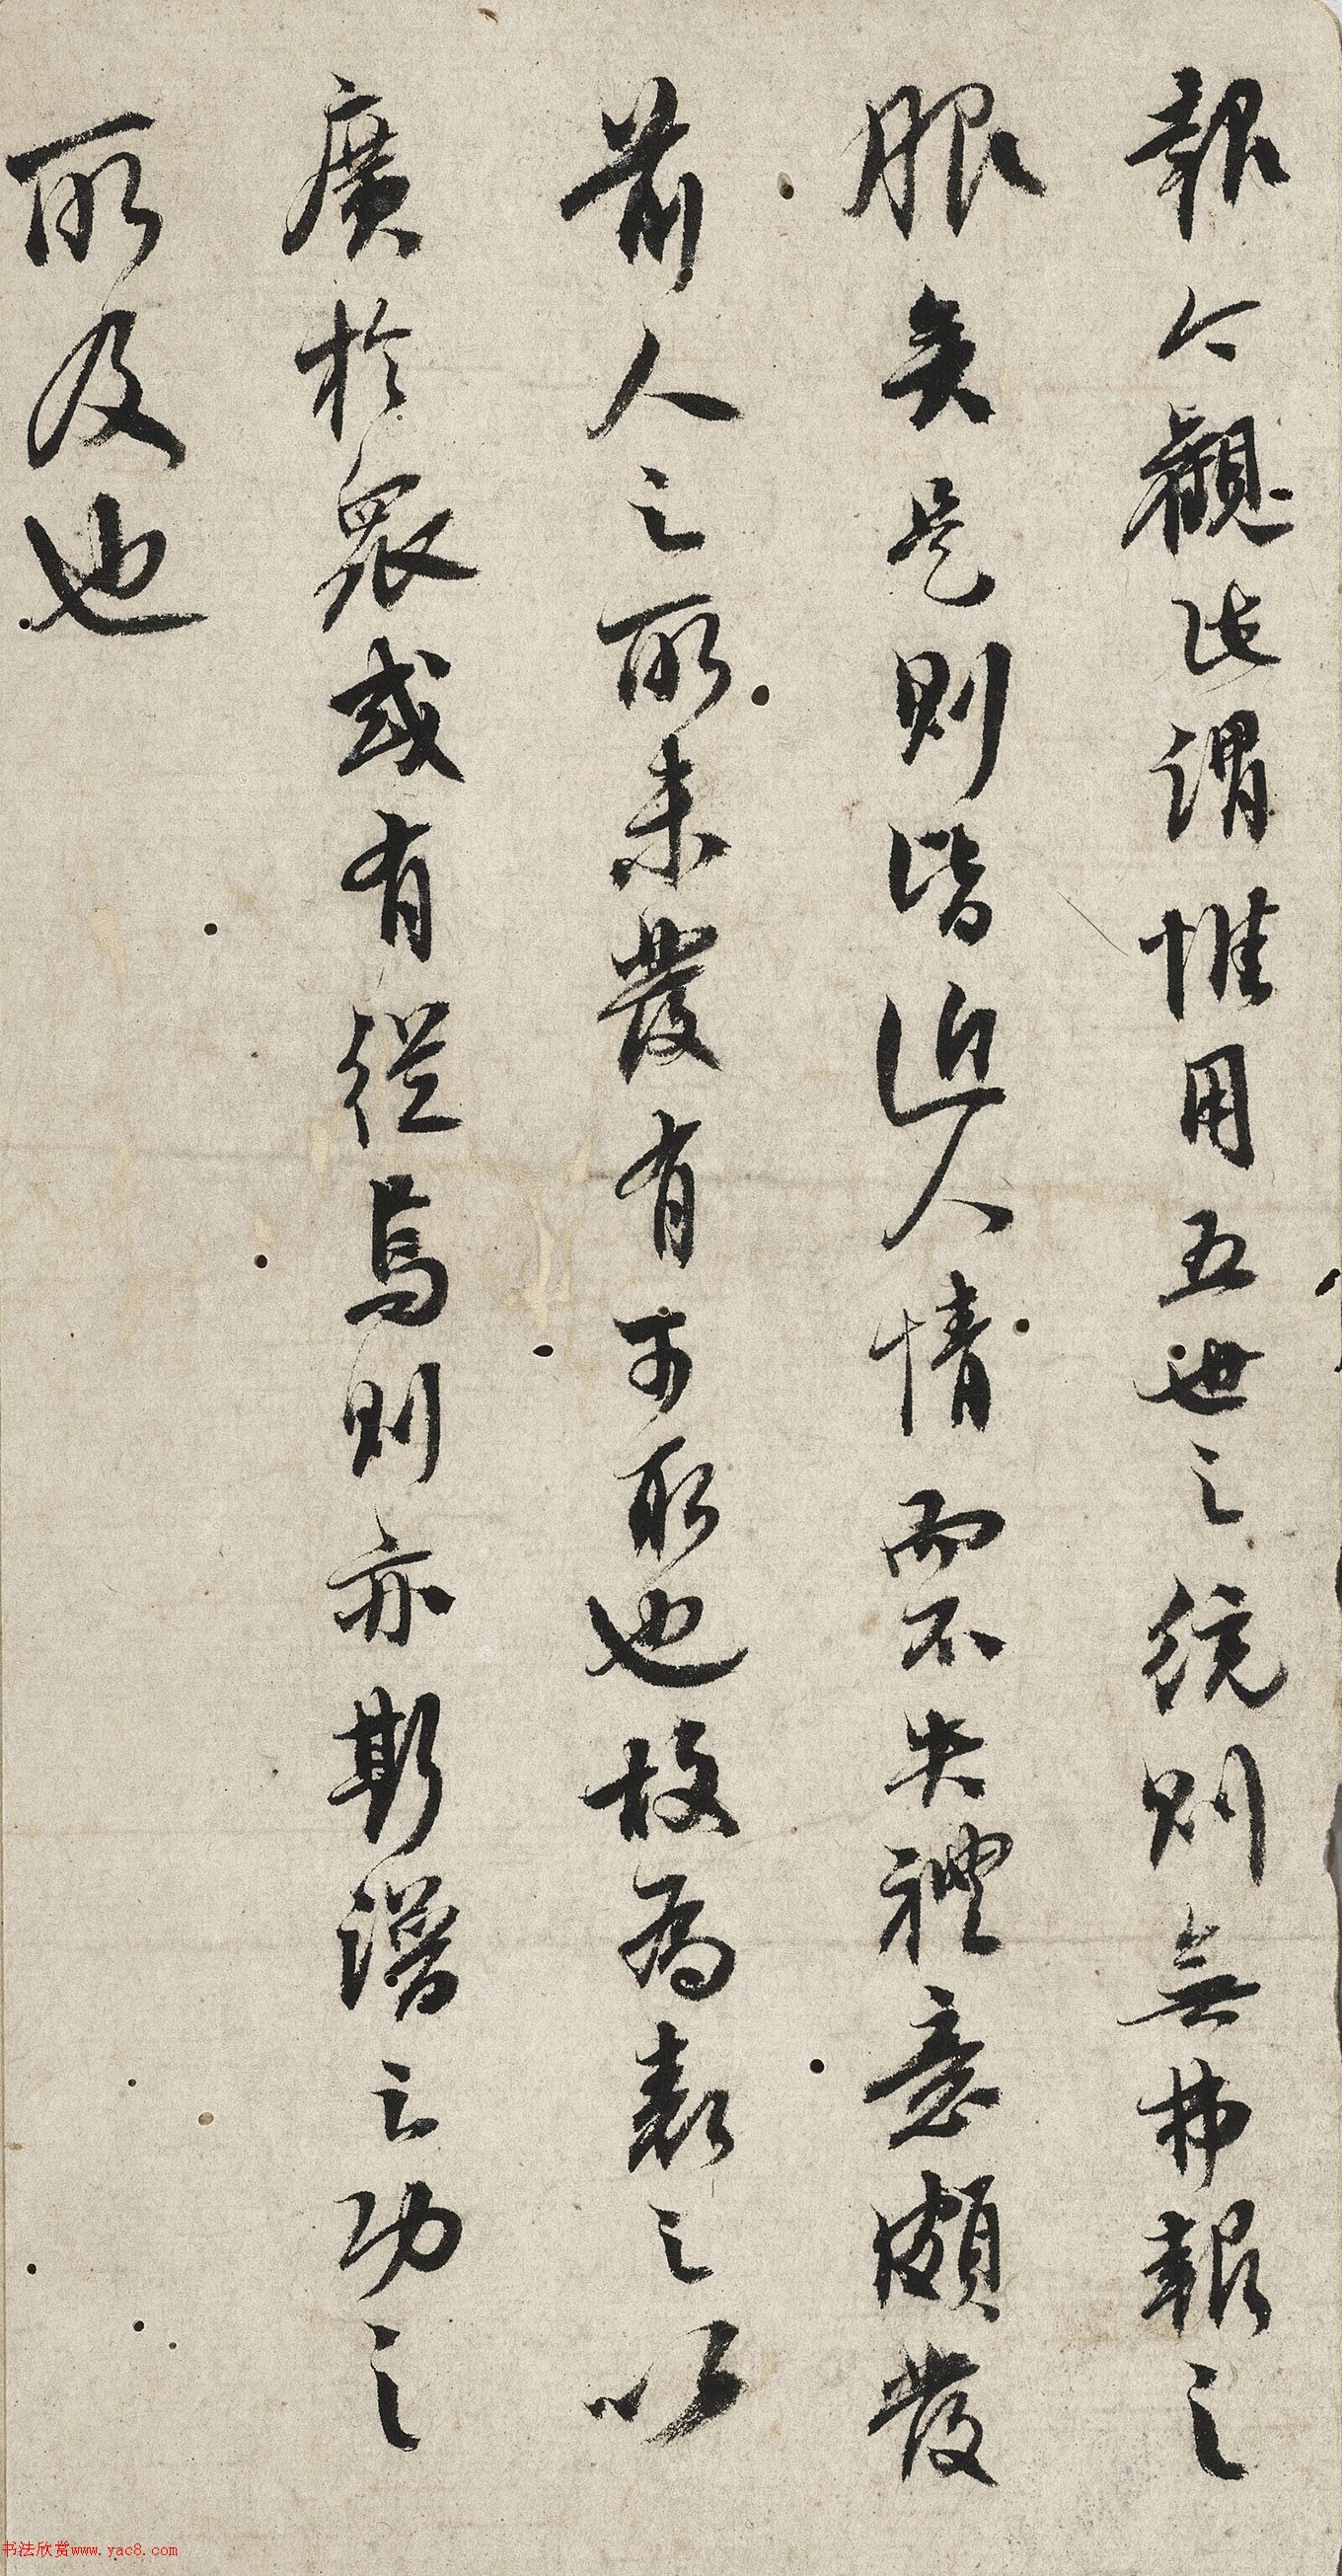 報今觀此謂惟用五世之統則無弗報之
服矣是則皆近人情而不失禮意頗發
前人之所未發有可取也故為表之以
廣於眾或有從焉則亦斯譜之功之
所及也
书法欣赏www.yac8.com